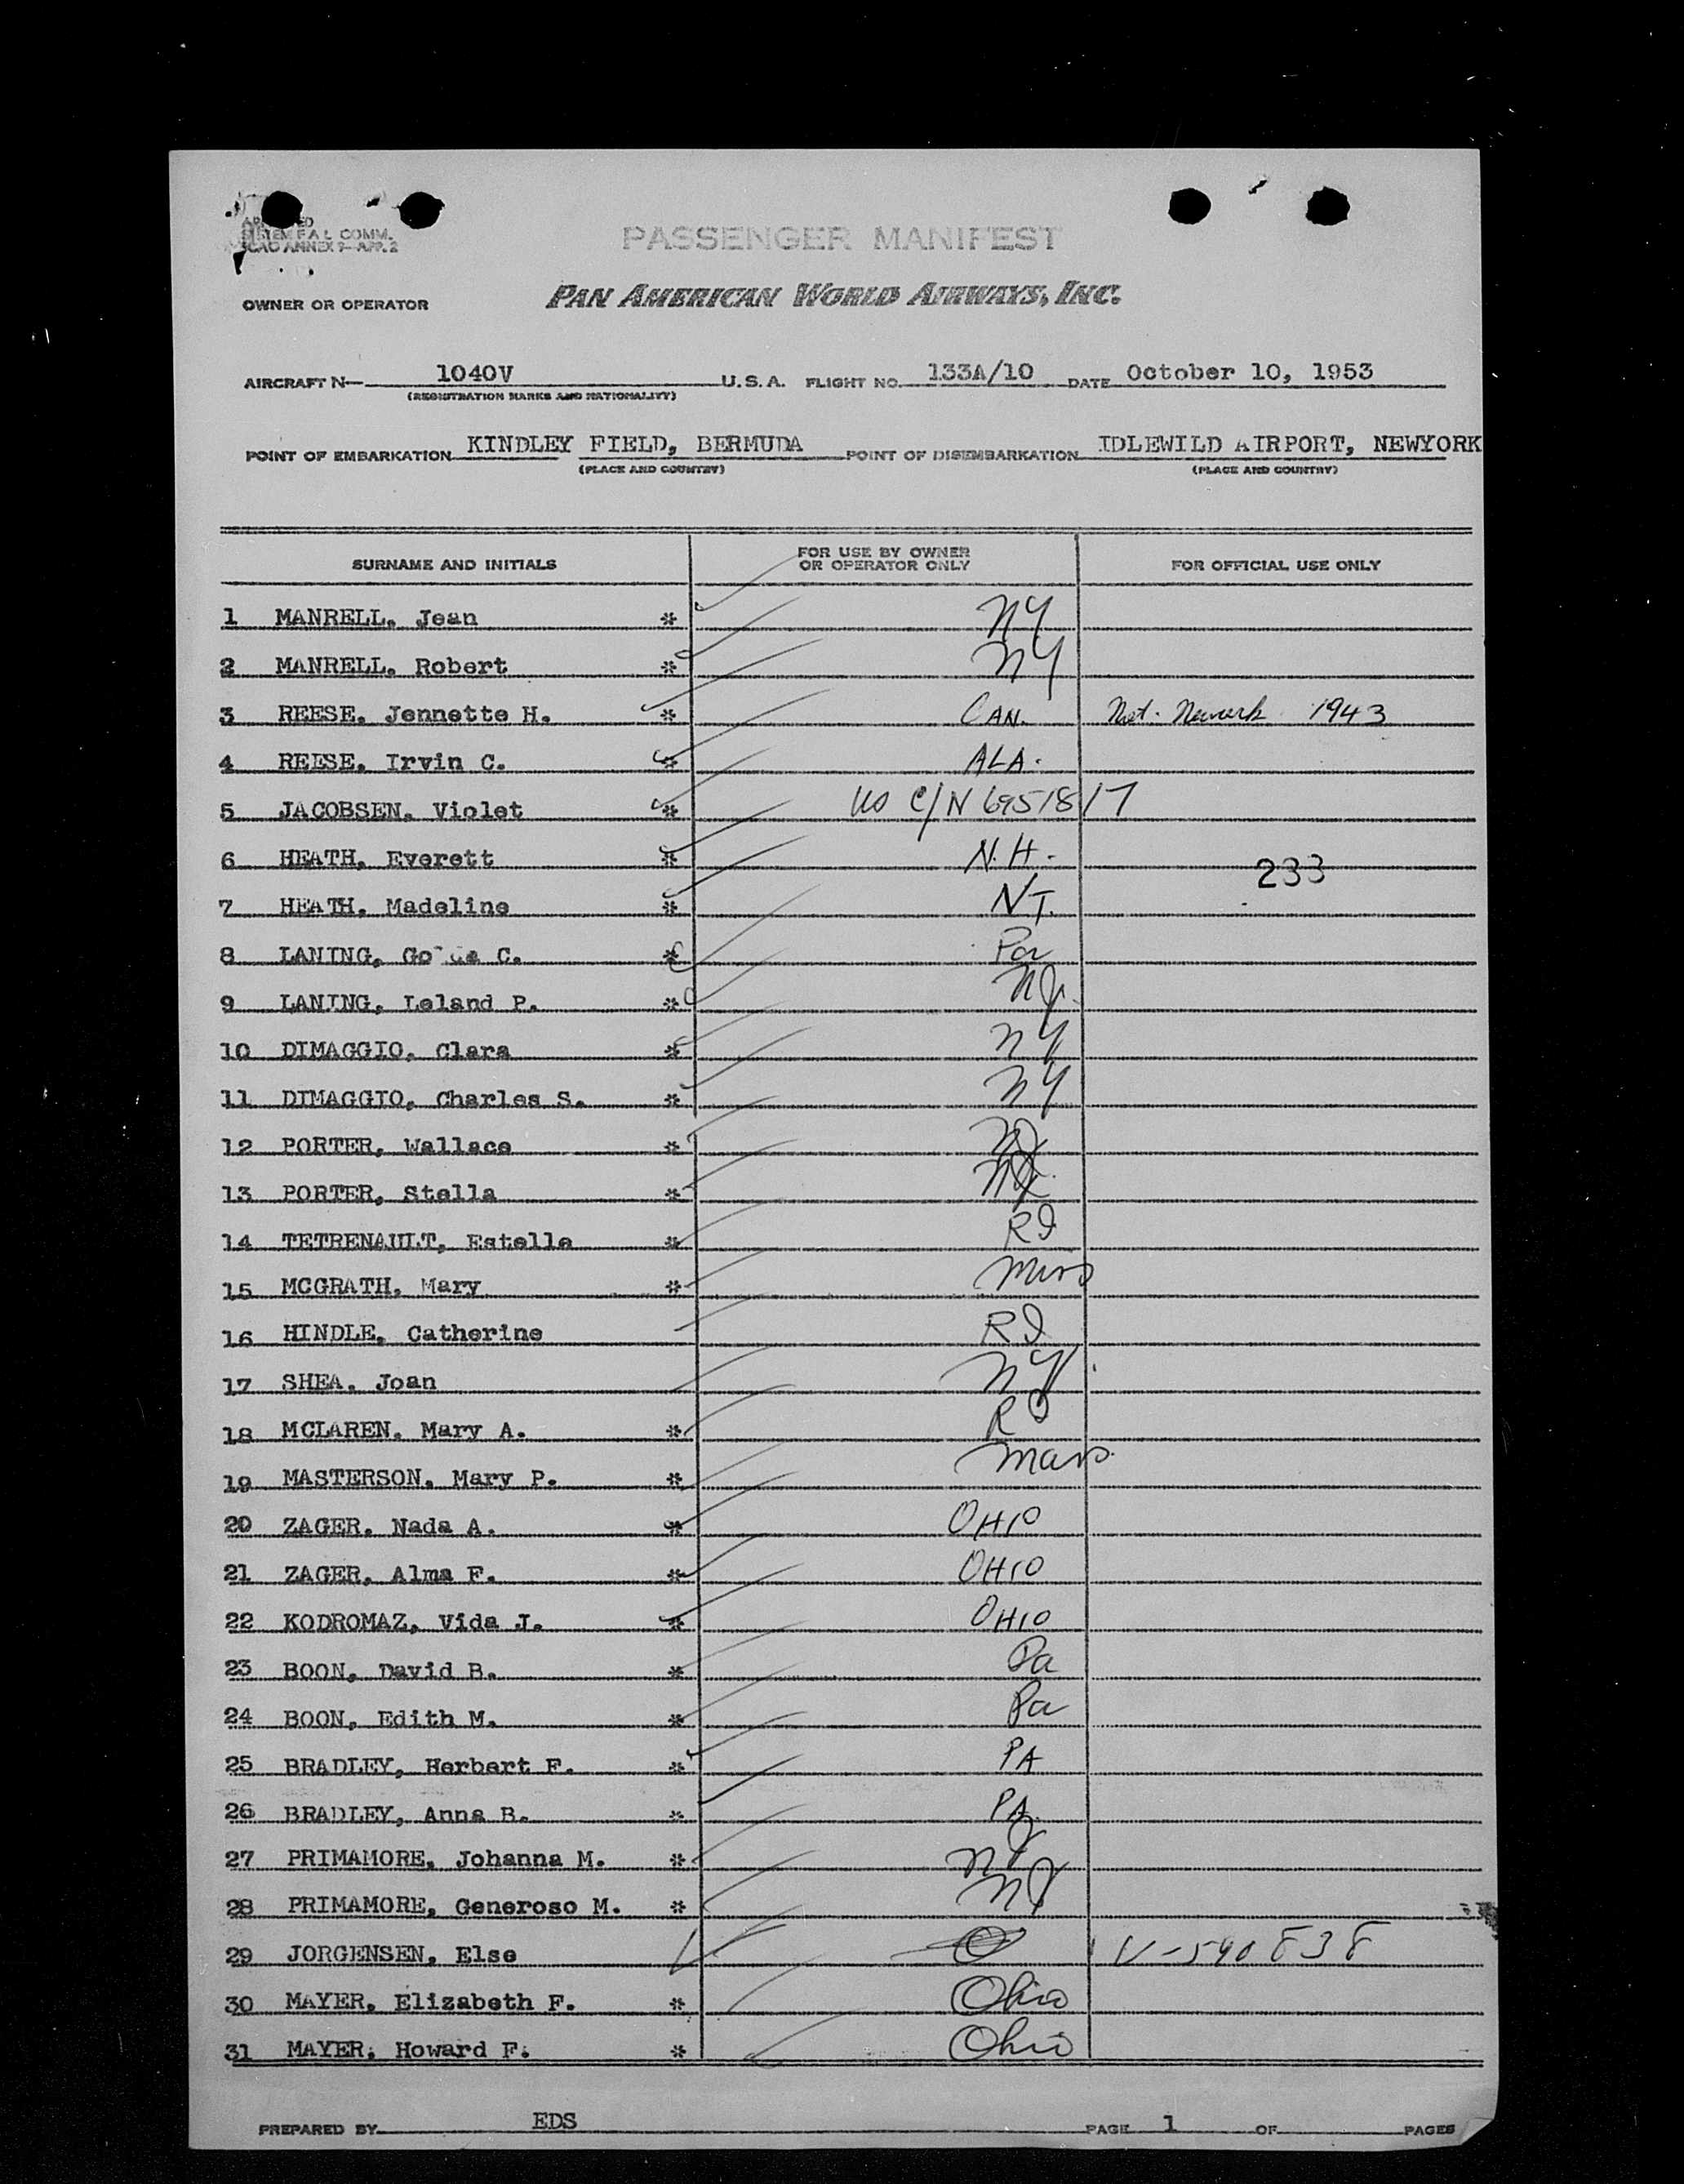 APPROVED
SYSTEM F A L COMM.
ICAO ANNEX 9—APP. 2
PASSENGER MANIFEST
OWNER OR OPERATOR PAN AMERICAN WORLD AIRWAYS, INC.
AIRCRAFT N— 1040V U.S.A. FLIGHT NO. 133A/10 DATE October 10, 1953
(REGISTRATION MARKS AND NATIONALITY)
POINT OF EMBARKATION KINDLEY FIELD, BERMUDA POINT OF DISEMBARKATION IDLEWILD AIRPORT, NEWYORK
(PLACE AND COUNTRY) (PLACE AND COUNTRY)
SURNAME AND INITIALS FOR USE BY OWNER OR OPERATOR ONLY FOR OFFICIAL USE ONLY
1 MANRELL, Jean * NY
2 MANRELL, Robert * NY
3 REESE, Jennette H. * CAN. Nat. Newark 1943
4 REESE, Irvin C. * ALA.
5 JACOBSEN, Violet * US C/N 6951817
6 HEATH, Everett * N.H. 233
7 HEATH, Madeline * NJ.
8 LANING, C. * Pa
9 LANING, Leland P. * NJ.
10 DIMAGGIO, Clara * NY
11 DIMAGGIO, Charles S. * NY
12 PORTER, Wallace * NJ
13 PORTER, Stella *
14 TETRENAULT, Estelle * RI
15 MCGRATH, Mary * Mass
16 HINDLE, Catherine RI
17 SHEA, Joan NY
18 MCLAREN, Mary A. * RI
19 MASTERSON, Mary P. * Mass
20 ZAGER, Nada A. * OHIO
21 ZAGER, Alma F. * OHIO
22 KODROMAZ, Vida J. * OHIO
23 BOON, David B. * Pa
24 BOON, Edith M. * Pa
25 BRADLEY, Herbert F. * PA
26 BRADLEY, Anna B. * PA
27 PRIMAMORE, Johanna M. * NJ
28 PRIMAMORE, Generoso M. * NJ
29 JORGENSEN, Else V-590838
30 MAYER, Elizabeth F. * Ohio
31 MAYER, Howard F. * Ohio
PREPARED BY EDS PAGE 1 OF PAGES